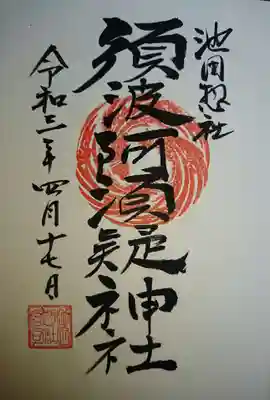 池田惣社
須波阿湏疑神社
令和三年四月十七日